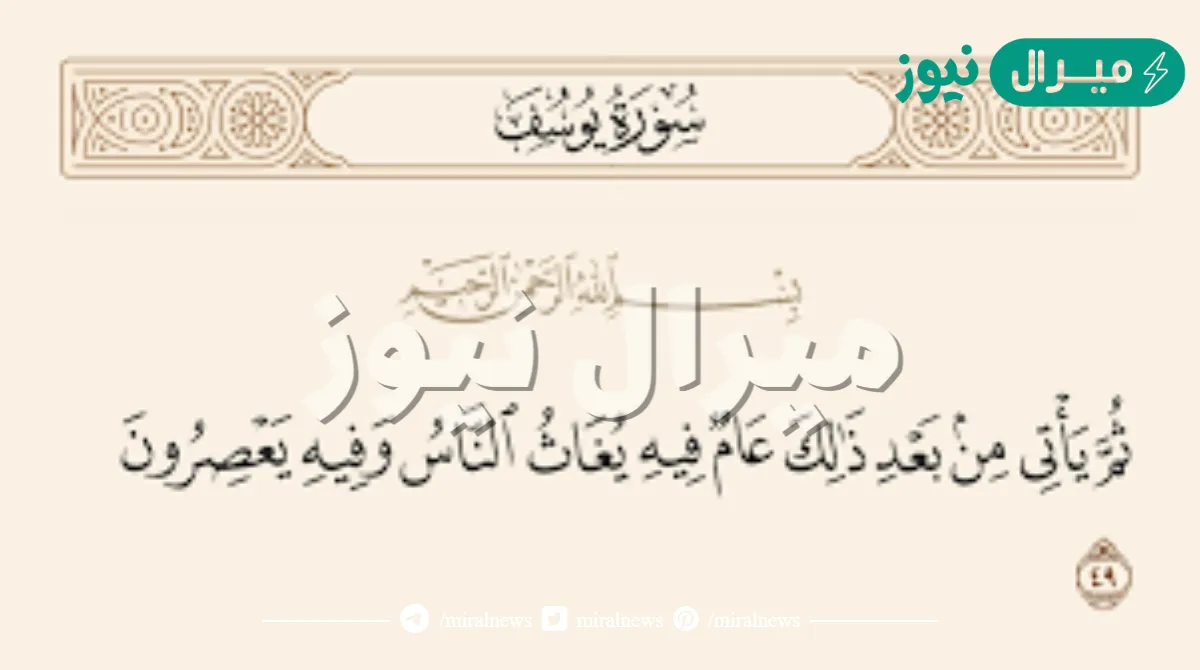 ميرال نيوز
سُورَةُ يُوسُفَ
بِسْمِ اللَّهِ الرَّحْمَٰنِ الرَّحِيمِ
ميرال نيوز
ثُمَّ يَأْتِي مِنۢ بَعْدِ ذَٰلِكَ عَامٌ فِيهِ يُغَاثُ ٱلنَّاسُ وَفِيهِ يَعْصِرُونَ
٤٩
/miralnews miralnews /miralnews